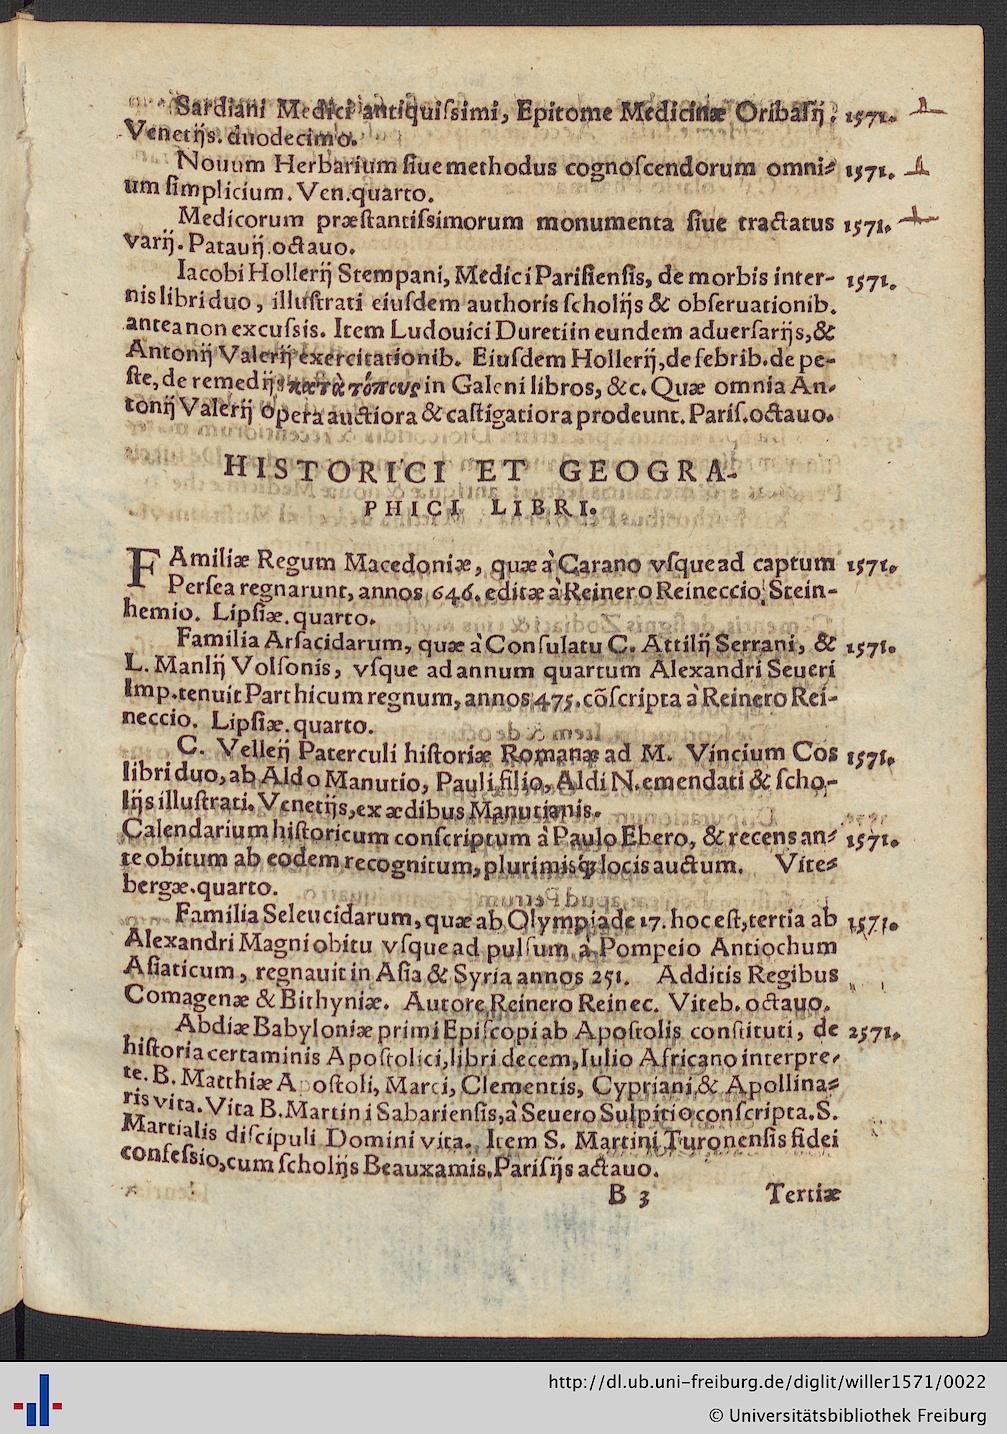 Sardiani Medici antiquiſsimi, Epitome Medicinæ Oribaſij. 1571.
Venetijs. duodecimo.
Nouum Herbarium ſiue methodus cognoſcendorum omni⸗ 1571.
um ſimplicium. Ven. quarto.
Medicorum præſtantiſsimorum monumenta ſiue tractatus 1571.
varij. Patauij. octauo.
Iacobi Hollerij Stempani, Medici Pariſienſis, de morbis inter- 1571.
nis libri duo, illuſtrati eiuſdem authoris ſcholijs & obſeruationib.
antea non excuſsis. Item Ludouici Duretii in eundem aduerſarijs, &
Antonij Valerij exercitationib. Eiuſdem Hollerij, de febrib. de pe-
ſte, de remedijs κατὰ τόπους in Galeni libros, &c. Quæ omnia An-
tonij Valerij opera auctiora & caſtigatiora prodeunt. Pariſ. octauo.
HISTORICI ET GEOGRA-
PHICI LIBRI.
FAmiliæ Regum Macedoniæ, quæ à Carano vſque ad captum 1571.
Perſea regnarunt, annos 646. editæ à Reinero Reineccio, Stein-
hemio. Lipſiæ. quarto.
Familia Arſacidarum, quæ à Conſulatu C. Attilij Serrani, & 1571.
L. Manlij Volſonis, vſque ad annum quartum Alexandri Seueri
Imp. tenuit Parthicum regnum, annos 475. cõſcripta à Reinero Rei-
neccio. Lipſiæ. quarto.
C. Vellerj Paterculi hiſtoriæ Romanæ ad M. Vincium Cos 1571.
libri duo, ab Aldo Manutio, Pauli filio, Aldi N. emendati & ſcho-
lijs illuſtrati. Venetijs, ex ædibus Manutianis.
Calendarium hiſtoricum conſcriptum à Paulo Ebero, & recens an⸗ 1571.
te obitum ab eodem recognitum, plurimisq́; locis auctum. Vite⸗
bergæ. quarto.
Familia Seleucidarum, quæ ab Olympiade 17. hoc eſt, tertia ab 1571.
Alexandri Magni obitu vſque ad pulſum à Pompeio Antiochum
Aſiaticum, regnauit in Aſia & Syria annos 251. Additis Regibus
Comagenæ & Bithyniæ. Autore Reinero Reinec. Viteb. octauo.
Abdiæ Babyloniæ primi Epiſcopi ab Apoſtolis conſtituti, de 2571.
hiſtoria certaminis Apoſtolici, libri decem, Iulio Africano interpre-
te. B. Matthiæ Apoſtoli, Marci, Clementis, Cypriani, & Apollina⸗
ris vita. Vita B. Martini Sabarienſis, à Seuero Sulpitio conſcripta. S.
Martialis diſcipuli Domini vita. Item S. Martini Turonenſis fidei
confeſsio, cum ſcholijs Beauxamis. Pariſijs actauo.
B 3 Tertiæ
http://dl.ub.uni-freiburg.de/diglit/willer1571/0022
© Universitätsbibliothek Freiburg